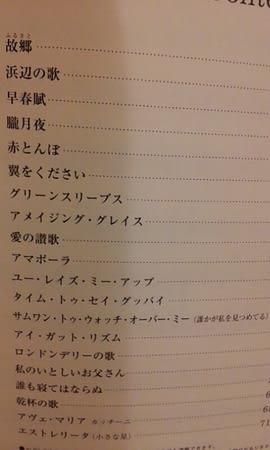 ふるさと
故郷
浜辺の歌
早春賦
朧月夜
赤とんぼ
翼をください
グリーンスリーブス
アメイジング・グレイス
愛の讃歌
アマポーラ
ユー・レイズ・ミー・アップ
タイム・トゥ・セイ・グッバイ
サムワン・トゥ・ウォッチ・オーバー・ミー (誰かが私を見つめてる)
アイ・ガット・リズム
ロンドンデリーの歌
私のいとしいお父さん
誰も寝てはならぬ
乾杯の歌
アヴェ・マリア カッチーニ
エストレリータ (小さな星)